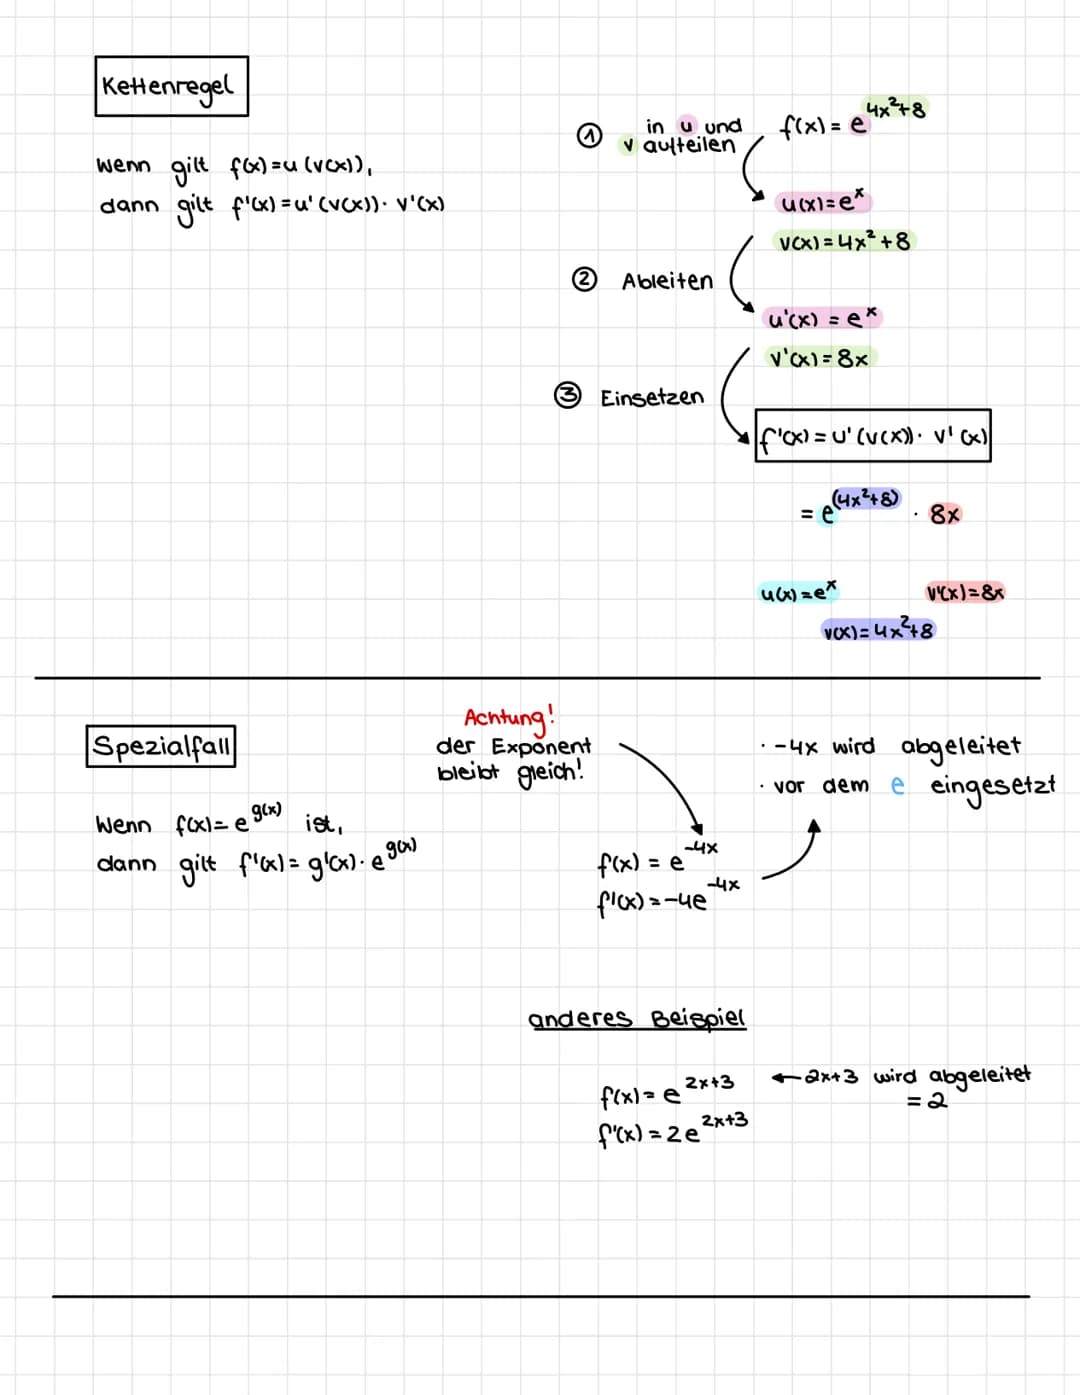 Kettenregel
wenn gilt f(x)=u(v(x)),
dann gilt f'(x)=u'(v(x))· v'(x)
① in u und
v aufteilen
f(x) = e^4x²+8
u(x)=e^x
v(x)=4x²+8
② Ableiten
u'(x) = e^x
v'(x)=8x
③ Einsetzen
f'(x)=u'(v(x))· v'(x)
= e^(4x²+8) · 8x
u(x)=e^x v'(x)=8x
v(x)=4x²+8
Spezialfall
Wenn f(x)=e^g(x) ist,
dann gilt f'(x)=g'(x)·e^g(x)
Achtung!
der Exponent
bleibt gleich!
f(x) = e^-4x
f'(x)=-4e^-4x
· -4x wird abgeleitet
· vor dem e eingesetzt
anderes Beispiel
f(x)=e^2x+3 ←2x+3 wird abgeleitet
= 2
f'(x)=2e^2x+3